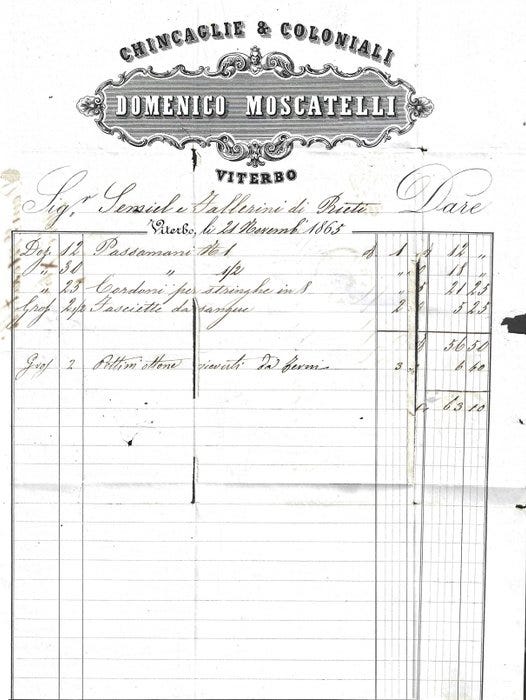 CHINCAGLIE & COLONIALI
DOMENICO MOSCATELLI
VITERBO
Sig.r e Tallerini di Rieti Dare
Viterbo, li 21 Novemb. 1865
Doz 12 Passamani N.1 1 12 "
" 30 " 1/2 " 18 "
" 23 Cordoni per stringhe in 8 " 21 25
Gros 2 1/2 Fasciette da sangue 2 5 25
56 50
Gros 2 Pettini ottone da Terni 3 6 60
63 10